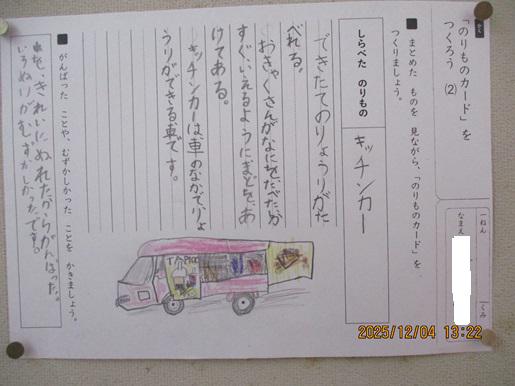 かく
「のりものカード」を
つくろう (2)
一ねん くみ
なまえ
■ まとめた ものを 見ながら、「のりものカード」を
つくりましょう。
しらべた のりもの
キッチンカー
できたてのりょうりがた
べれる。
おきゃくさんがなにをたべたいか
すぐいえるようにまどをあ
けてある。
キッチンカーは、車のなかでりょ
うりができる車です。
■ がんばった ことや、むずかしかった ことを かきましょう。
きれいにぬれたからがんばった。
いろぬりがむずかしかったです。
2025/12/04 13:22